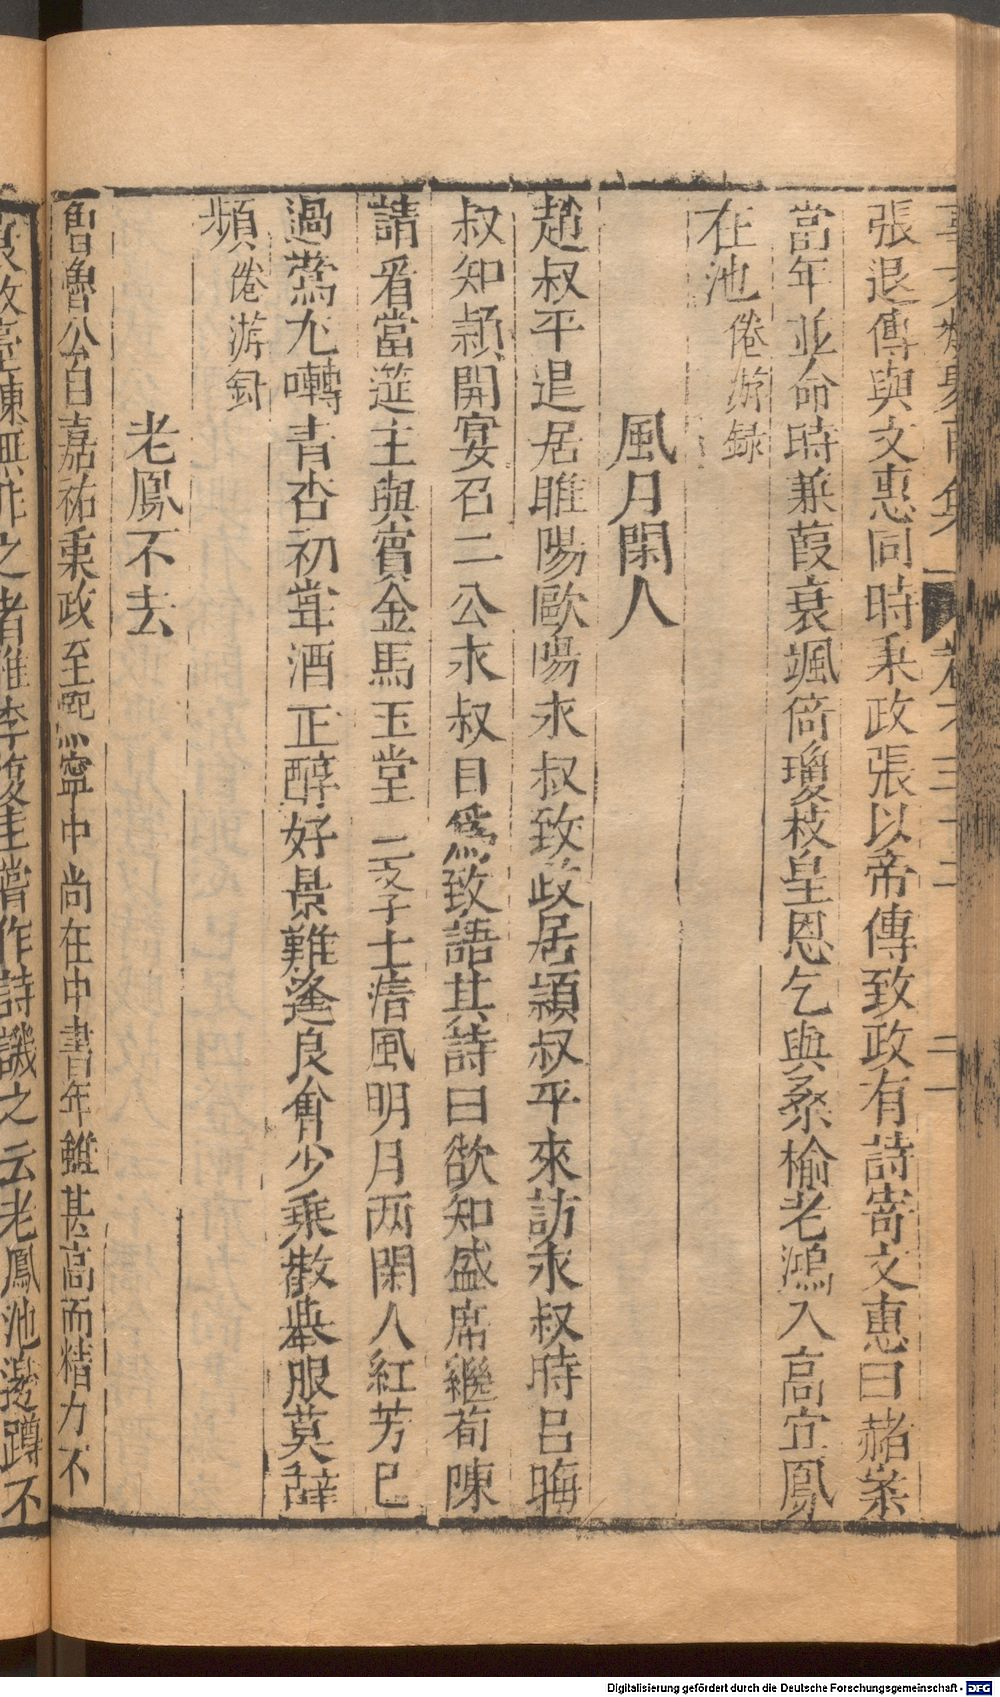 張退傳與文惠同時秉政張以帝傳致政有詩寄文惠曰赭案
當年並命時兼葭衰颯倚瓊枝皇恩乞與桑榆老鴻入高冥鳳
在池倦游録
風月閑人
趙叔平退居睢陽歐陽永叔致政居潁叔平來訪永叔時呂晦
叔知潁開宴召二公永叔目爲致語其詩曰欲知盛席繼荀陳
請看當筵主與賓金馬玉堂三學士清風明月两閑人紅芳已
過鶯尤囀青杏初嘗酒正醇好景難逢良會少乘歡舉服莫辭
頻倦游録
老鳳不去
魯公自嘉祐秉政至熙寧中尚在中書年雖甚高而精力不
之者惟李復圭嘗作詩譏之云老鳳池邊蹲不
Digitalisierung gefördert durch die Deutsche Forschungsgemeinschaft - DFG